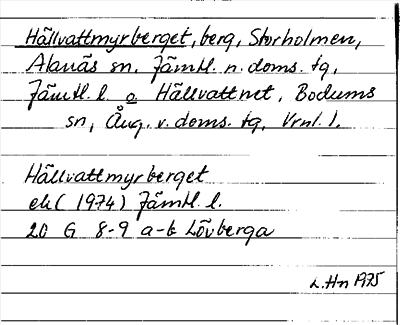 Hällvattmyrberget, berg, Storholmen,
Alanäs sn, Jämtl. n. doms. tg,
Jämtl. l. o Hällvattnet, Bodums
sn, Ång. v. doms. tg, Vrnl. l.
Hällvattmyrberget
ek (1974) Jämtl. l.
20 G 8-9 a-b Lövberga
L. Hn 1975